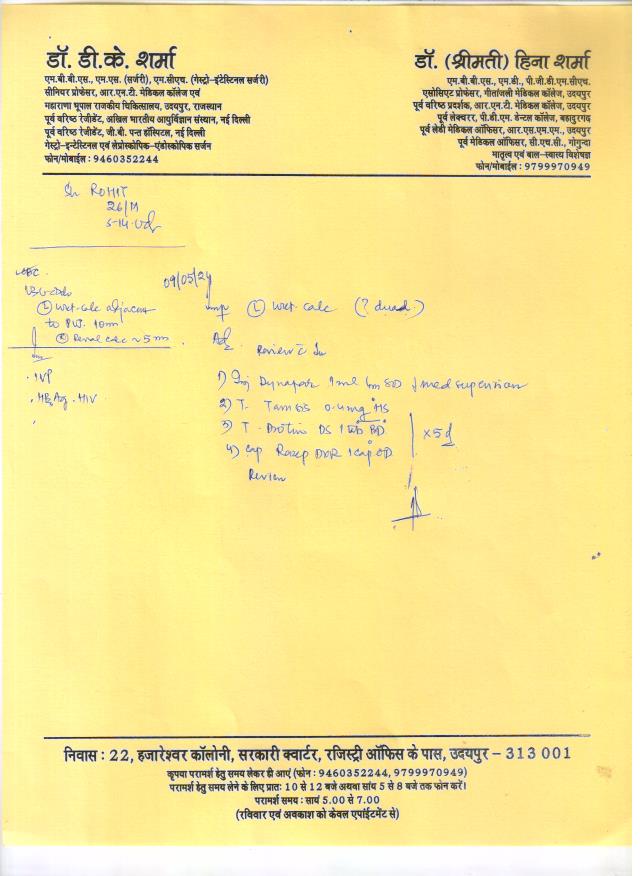 डॉ. डी.के. शर्मा
एम.बी.बी.एस., एम.एस. (सर्जरी), एम.सीएच. (गेस्ट्रो-इंटेस्टिनल सर्जरी)
सीनियर प्रोफेसर, आर.एन.टी. मेडिकल कॉलेज एवं
महाराणा भूपाल राजकीय चिकित्सालय, उदयपुर, राजस्थान
पूर्व वरिष्ठ रेजीडेंट, अखिल भारतीय आयुर्विज्ञान संस्थान, नई दिल्ली
पूर्व वरिष्ठ रेजीडेंट, जी.बी. पन्त हॉस्पिटल, नई दिल्ली
गेस्ट्रो-इन्टेस्टिनल एवं लेप्रोस्कोपिक-एंडोस्कोपिक सर्जन
फोन/मोबाईल : 9460352244
डॉ. (श्रीमती) हिना शर्मा
एम.बी.बी.एस., एम.डी., पी.जी.डी.एम.सीएच.
एसोसिएट प्रोफेसर, गीतांजली मेडिकल कॉलेज, उदयपुर
पूर्व वरिष्ठ प्रदर्शक, आर.एन.टी. मेडिकल कॉलेज, उदयपुर
पूर्व लेक्चरर, पी.डी.एम. डेन्टल कॉलेज, बहादुरगढ़
पूर्व लेडी मेडिकल ऑफिसर, आर.एस.एम.एम., उदयपुर
पूर्व मेडिकल ऑफिसर, सी.एच.सी., गोगुन्दा
मातृत्व एवं बाल-स्वास्थ्य विशेषज्ञ
फोन/मोबाईल : 9799970949
ROHIT
26/M
S-14
09/05/24
(L) calc adjacent
to 10m
Renal calc ~ 5 m
. IVP
. HBsAg . HIV
Imp (L) calc
Adv
Review
1) Inj Dynapar 1 ml
2) T. 0.4mg HS
3) T. DS BD
4) Cap Razep DSR 1 cap OD
x 5 d
Review
निवास : 22, हजारेश्वर कॉलोनी, सरकारी क्वार्टर, रजिस्ट्री ऑफिस के पास, उदयपुर – 313 001
कृपया परामर्श हेतु समय लेकर ही आएं (फोन : 9460352244, 9799970949)
परामर्श हेतु समय लेने के लिए प्रातः 10 से 12 बजे अथवा सांय 5 से 8 बजे तक फोन करें।
परामर्श समय : सायं 5.00 से 7.00
(रविवार एवं अवकाश को केवल एपांईटमेंट से)